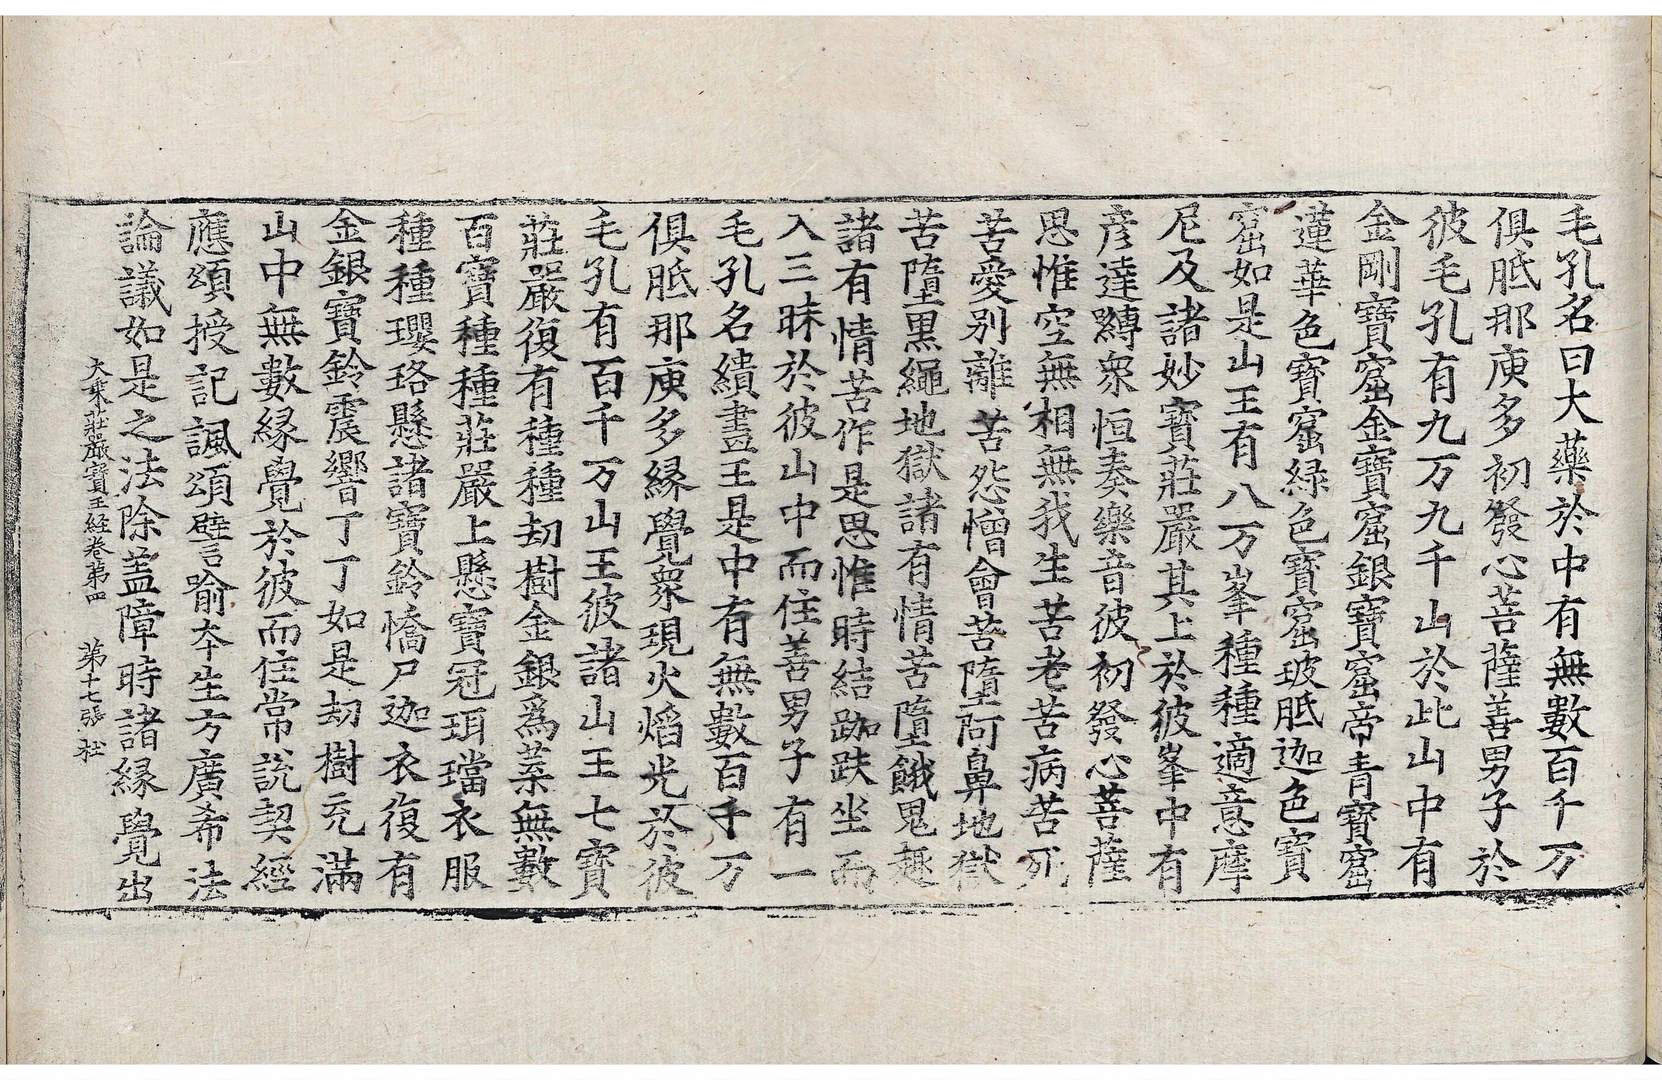 毛孔名曰大藥於中有無數百千万
俱胝那庾多初發心菩薩善男子於
彼毛孔有九万九千山於此山中有
金剛寶窟金寶窟銀寶窟帝青寶窟
蓮華色寶窟緑色寶窟玻胝迦色寶
窟如是山王有八万峯種種適意摩
尼及諸妙寶莊嚴其上於彼峯中有
彦達縛衆恒奏樂音彼初發心菩薩
思惟空無相無我生苦老苦病苦死
苦愛別離苦怨憎會苦墮阿鼻地獄
苦墮黒繩地獄諸有情苦墮餓鬼趣
諸有情苦作是思惟時結跏趺坐而
入三昧於彼山中而住善男子有一
毛孔名繢畫王是中有無數百千万
俱胝那庾多縁覺衆現火熖光於彼
毛孔有百千万山王彼諸山王七寶
莊嚴復有種種劫樹金銀爲葉無數
百寶種種莊嚴上懸寶冠珥璫衣服
種種瓔珞懸諸寶鈴憍尸迦衣復有
金銀寶鈴震響丁丁如是劫樹充滿
山中無數縁覺於彼而住常説契經
應頌授記諷頌譬喻夲生方廣希法
論議如是之法除盖障時諸縁覺出
大乘莊嚴寶王経卷第四　第十七張　松